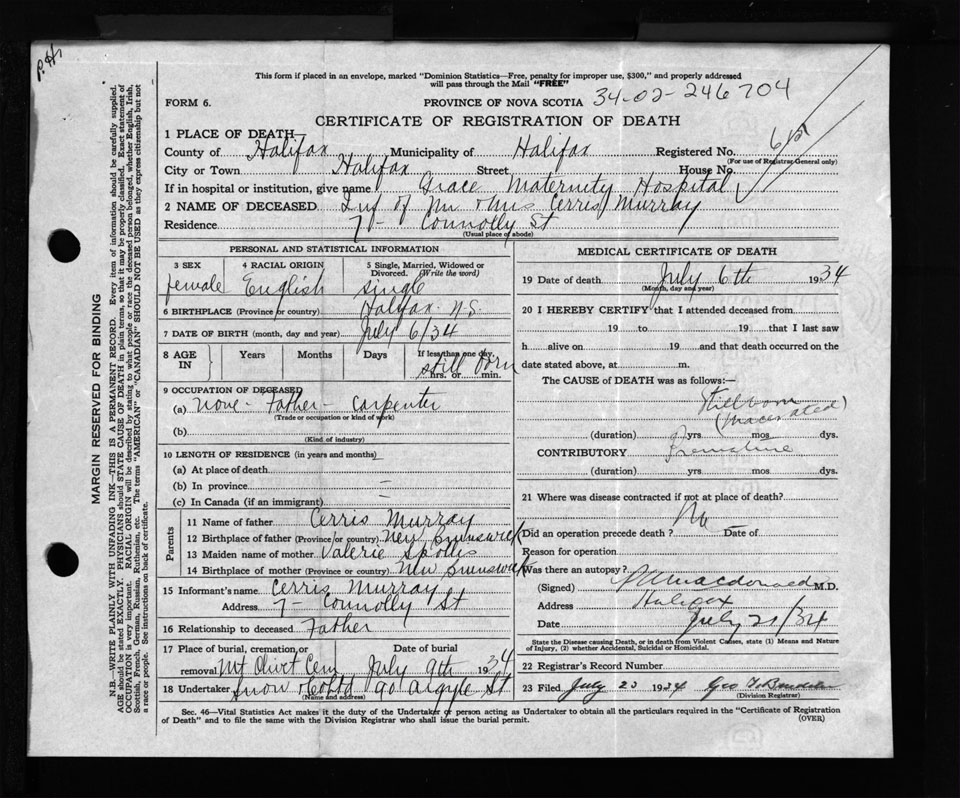 P.H.
This form if placed in an envelope, marked "Dominion Statistics—Free, penalty for improper use, $300," and properly addressed
will pass through the Mail "FREE"
FORM 6.
PROVINCE OF NOVA SCOTIA 34-02-246704
CERTIFICATE OF REGISTRATION OF DEATH
1 PLACE OF DEATH—
County of Halifax Municipality of Halifax Registered No.
(For use of Registrar General only)
City or Town Halifax Street House No.
If in hospital or institution, give name Grace Maternity Hospital
2 NAME OF DECEASED Inf of Mr & Mrs Cerris Murray
Residence 7- Connolly St
(Usual place of abode)
PERSONAL AND STATISTICAL INFORMATION
3 SEX 4 RACIAL ORIGIN 5 Single, Married, Widowed or Divorced. (Write the word)
female English single
6 BIRTHPLACE (Province or country) Halifax N.S.
7 DATE OF BIRTH (month, day and year) July 6/34
8 AGE IN Years Months Days If less than one day, hrs. or min.
still born
9 OCCUPATION OF DECEASED
(a) none - Father - Carpenter
(Trade or occupation or kind of work)
(b)
(Kind of industry)
10 LENGTH OF RESIDENCE (in years and months)
(a) At place of death
(b) In province
(c) In Canada (if an immigrant)
Parents
11 Name of father Cerris Murray
12 Birthplace of father (Province or country) New Brunswick
13 Maiden name of mother Valerie
14 Birthplace of mother (Province or country) New Brunswick
15 Informant's name Cerris Murray
Address 7- Connolly St
16 Relationship to deceased Father
17 Place of burial, cremation, or removal Mt Olivet Cem July 9th 1934
18 Undertaker Snow & Co Ltd 90 Argyle St
(Name and address)
MEDICAL CERTIFICATE OF DEATH
19 Date of death July 6th 1934
(Month, day and year)
20 I HEREBY CERTIFY that I attended deceased from
19 to 19 that I last saw
h alive on 19 and that death occurred on the
date stated above, at m.
The CAUSE of DEATH was as follows:—
Stillborn
(Macerated)
(duration) yrs mos dys.
CONTRIBUTORY Premature
(duration) yrs mos dys.
21 Where was disease contracted if not at place of death?
Did an operation precede death ? No Date of
Reason for operation
Was there an autopsy?
(Signed) Macdonald M.D.
Address Halifax
Date July 21/34
State the Disease causing Death, or in death from Violent Causes, state (1) Means and Nature
of Injury, (2) whether Accidental, Suicidal or Homicidal.
22 Registrar's Record Number
23 Filed July 23 1934 Geo
(Division Registrar)
Sec. 46—Vital Statistics Act makes it the duty of the Undertaker or person acting as Undertaker to obtain all the particulars required in the "Certificate of Registration
of Death" and to file the same with the Division Registrar who shall issue the burial permit.
(OVER)
MARGIN RESERVED FOR BINDING
N.B.—WRITE PLAINLY WITH UNFADING INK—THIS IS A PERMANENT RECORD. Every item of information should be carefully supplied.
AGE should be stated EXACTLY. PHYSICIANS should STATE CAUSE OF DEATH in plain terms, so that it may be properly classified. Exact statement of
OCCUPATION is very important. RACIAL ORIGIN will be described by stating to what people or race the deceased person belonged, whether English, Irish,
Scottish, French, German, Russian, Ruthenian, etc. The terms "AMERICAN" or "CANADIAN" SHOULD NOT BE USED as they express citizenship but not
a race or people. See instructions on back of certificate.